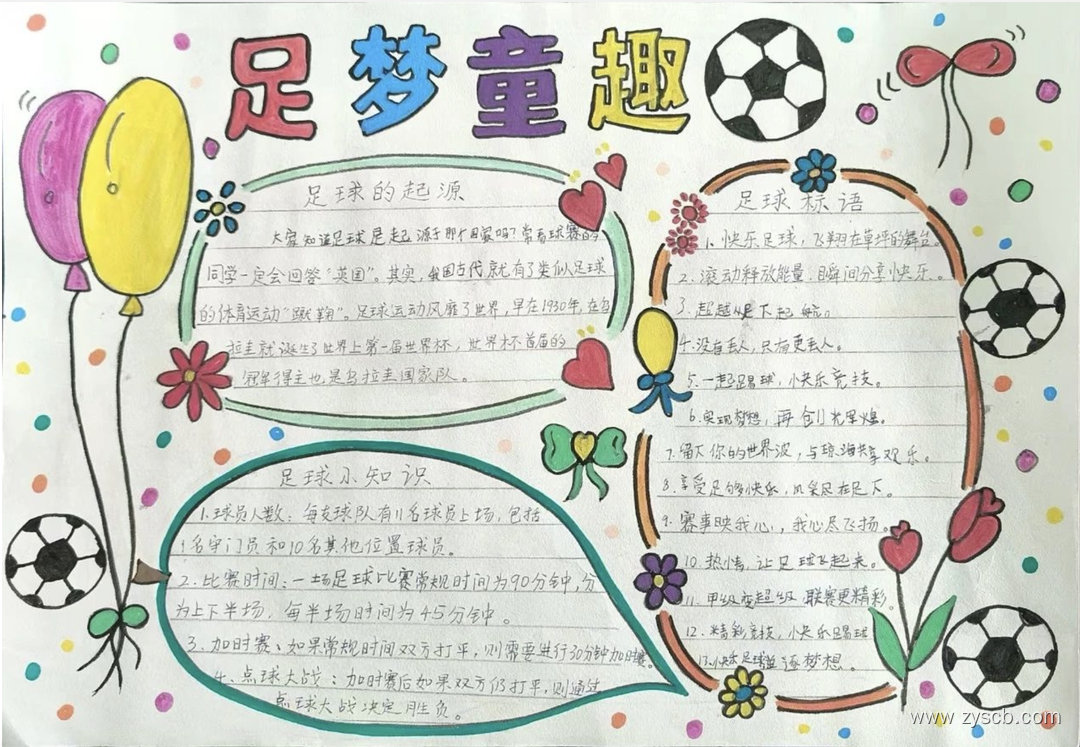 足梦童趣
足球的起源
大家知道足球是起源于那个国家吗?常看球赛的
同学一定会回答"英国"。其实,我国古代就有了类似足球
的体育运动"蹴鞠"。足球运动风靡了世界,早在1930年,在乌
拉圭就诞生了世界上第一届世界杯,世界杯首届的
冠军得主也是乌拉圭国家队。
足球小知识
1.球员人数:每支球队有11名球员上场,包括
1名守门员和10名其他位置球员。
2.比赛时间:一场足球比赛常规时间为90分钟,分
为上下半场,每半场时间为45分钟。
3.加时赛:如果常规时间双方打平,则需要进行30分钟加时赛。
4.点球大战:加时赛后如果双方仍打平,则通过
点球大战决定胜负。
足球标语
1.快乐足球,飞翔在草坪的舞台。
2.滚动释放能量,瞬间分享快乐。
3.超越足下起航。
4.没有丢人,只有更丢人。
5.一起踢球,小快乐竞技。
6.实现梦想,再创光辉煌。
7.留下你的世界波,与琼海共享欢乐。
8.享受足够快乐,风采尽在足下。
9.赛事映我心,我心尽飞扬。
10.热情,让足球飞起来。
11.甲级变超级 联赛更精彩。
12.精彩竞技,小快乐踢球
13.小快乐足球 逐梦想。
www.zyscb.com